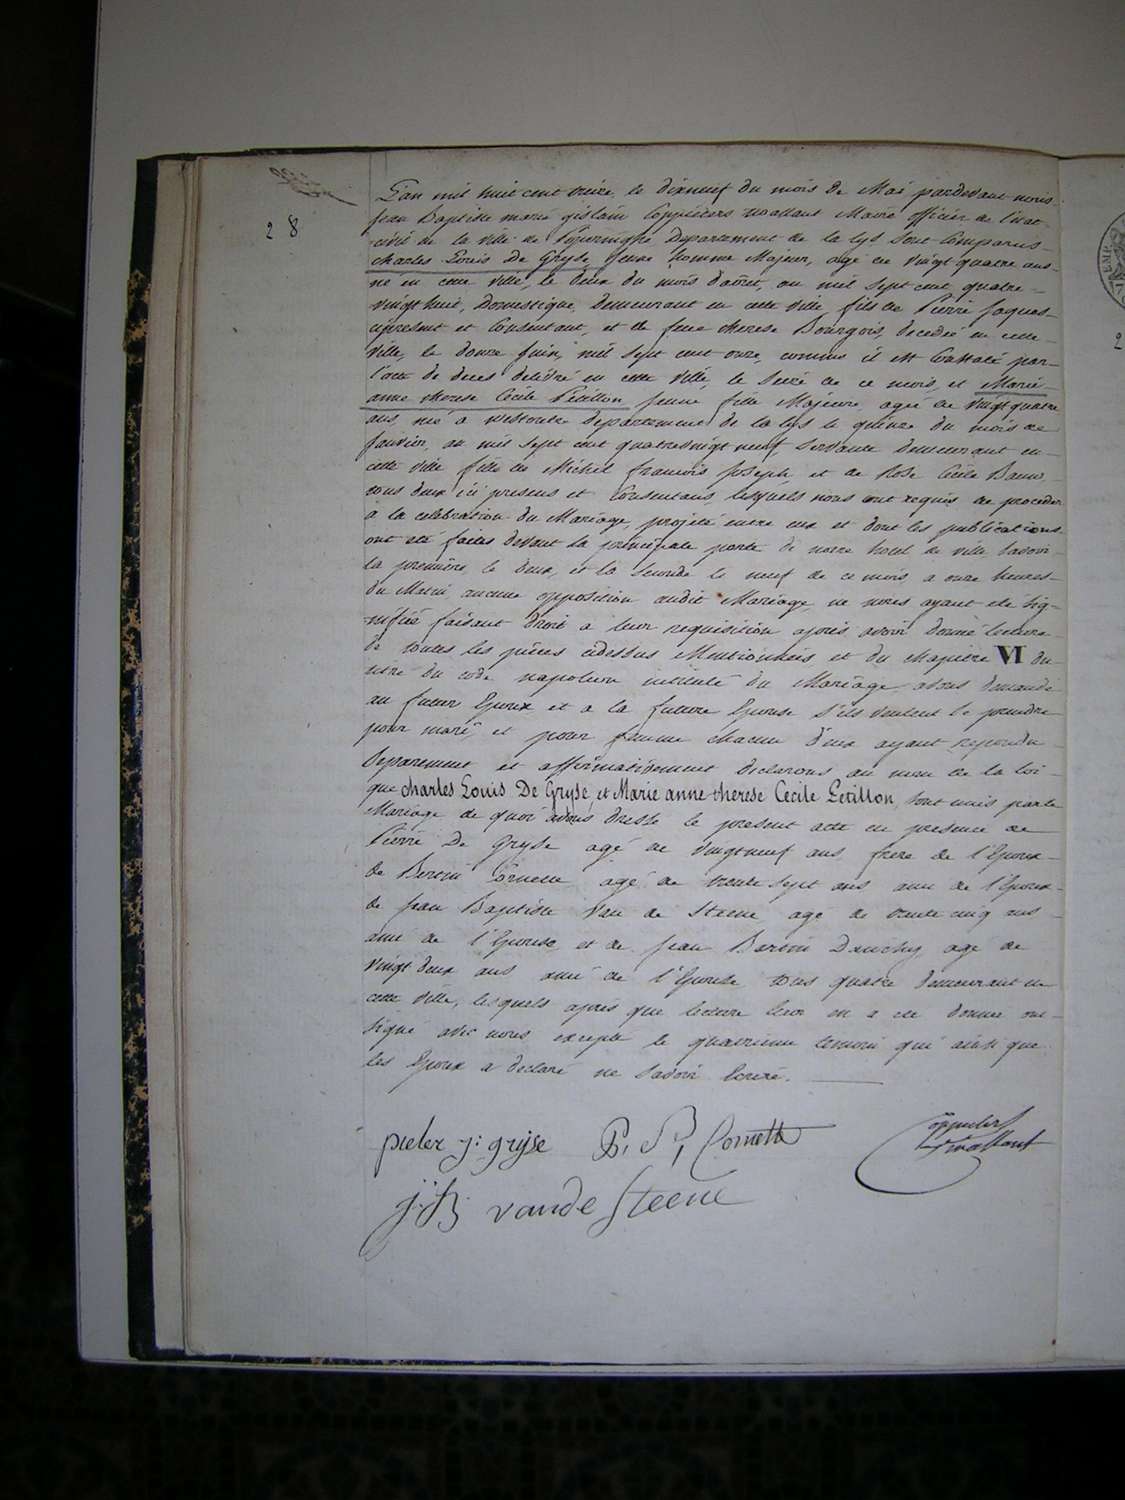 28
L'an mil huit cent treize le dixneuf du mois de Mai pardevant nous
jean Baptiste marie gislain Coppieters wallant Maire officier de l'état
civil de la ville de Poperinghe Departement de la Lys sont comparus
charles Louis De Gryse jeune homme Majeur, agé de vingt quatre ans
né en cette ville, le deux du mois d'aôut, an mil sept cent quatre
vingt huit, Domestique, demeurant en cette ville fils de Pierre jaques
present et Consentant, et de feue therese Bourgois, decedée en cette
ville, le douze juin, mil sept cent onze, comme il est Constaté par
l'acte de deces delivré en cette ville, le seize de ce mois, et Marie
anne therese Cécile Petillon jeune fille Majeure agée de vingt quatre
ans, née a westoutre departement de la lys le quinze du mois de
janvier, an mil sept cent quatrevingt neuf, servante demeurant en
cette ville fille de Michel francois joseph, et de Rose Cécile Bauw
tous deux ici presens et Consentans, lesquels nous ont requis de proceder
à la celebration du Mariage, projeté entre eux et dont les publications
ont eté faites devant la principale porte de notre hotel de ville, savoir
la première, le deux, et la seconde le neuf de ce mois a onze heures
du Matin, aucune opposition audit Mariage, ne nous ayant eté sig-
nifiée faisant droit a leur requisition après avoir donné lecture
de toutes les pièces cidessus Mentionnées et du chapitre VI du
titre du code napoleon intitulé du Mariage avons demandé
au futur Epoux et a la future Epouse s'ils veulent se prendre
pour mari, et pour femme chacun d'eux ayant repondu
separement et affirmativement declarons au nom de la loi
que charles Louis De Gryse, et Marie anne therese Cecile Petillon, sont unis par le
Mariage de quoi avons dressé le present acte en presence de
Pierre De Gryse agé de vingtneuf ans frere de l'Epoux
de Bertin Cornette agé de trente sept ans ami de l'Epoux
de jean Baptiste Van de Steene agé de trente cinq ans
ami de l'Epouse et de jean Bertin Dauchy agé de
vingt deux ans ami de l'Epouse tous quatre demeurant en
cette ville, lesquels après que lecture leur en a eté donnée ont
signé avec nous excepte le quatrieme temoin qui ainsi que
les Epoux a declaré ne savoir Ecrire.
pieter j: gryse P, Cornette Coppieters
wallant
j:B vande Steene